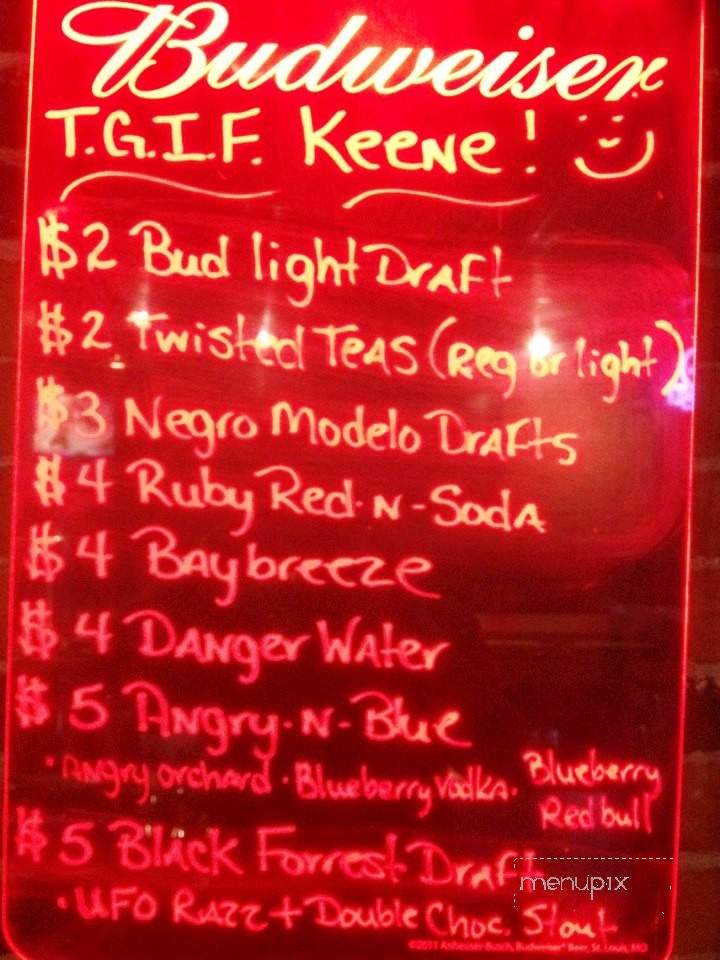 Budweiser
T.G.I.F. Keene!
$2 Bud light Draft
$2 Twisted Teas (Reg or light)
$3 Negro Modelo Drafts
$4 Ruby Red-N-Soda
$4 Baybreeze
$4 Danger Water
$5 Angry-N-Blue
·Angry orchard ·Blueberry Vodka· Blueberry
Redbull
$5 Black Forrest Draft
menupix
·UFO Razz + Double Choc. Stout
©2011 Anheuser-Busch, Budweiser® Beer, St. Louis, MO